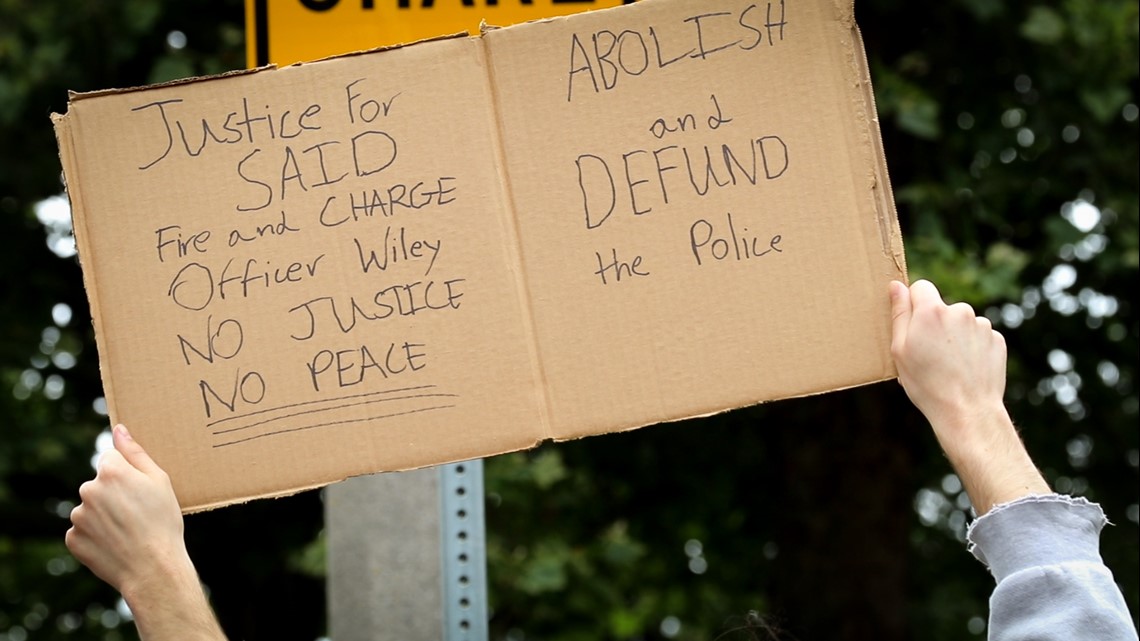 SHARE
Justice For
SAID
Fire and CHARGE
Officer Wiley
NO JUSTICE
NO PEACE
ABOLISH
and
DEFUND
the Police